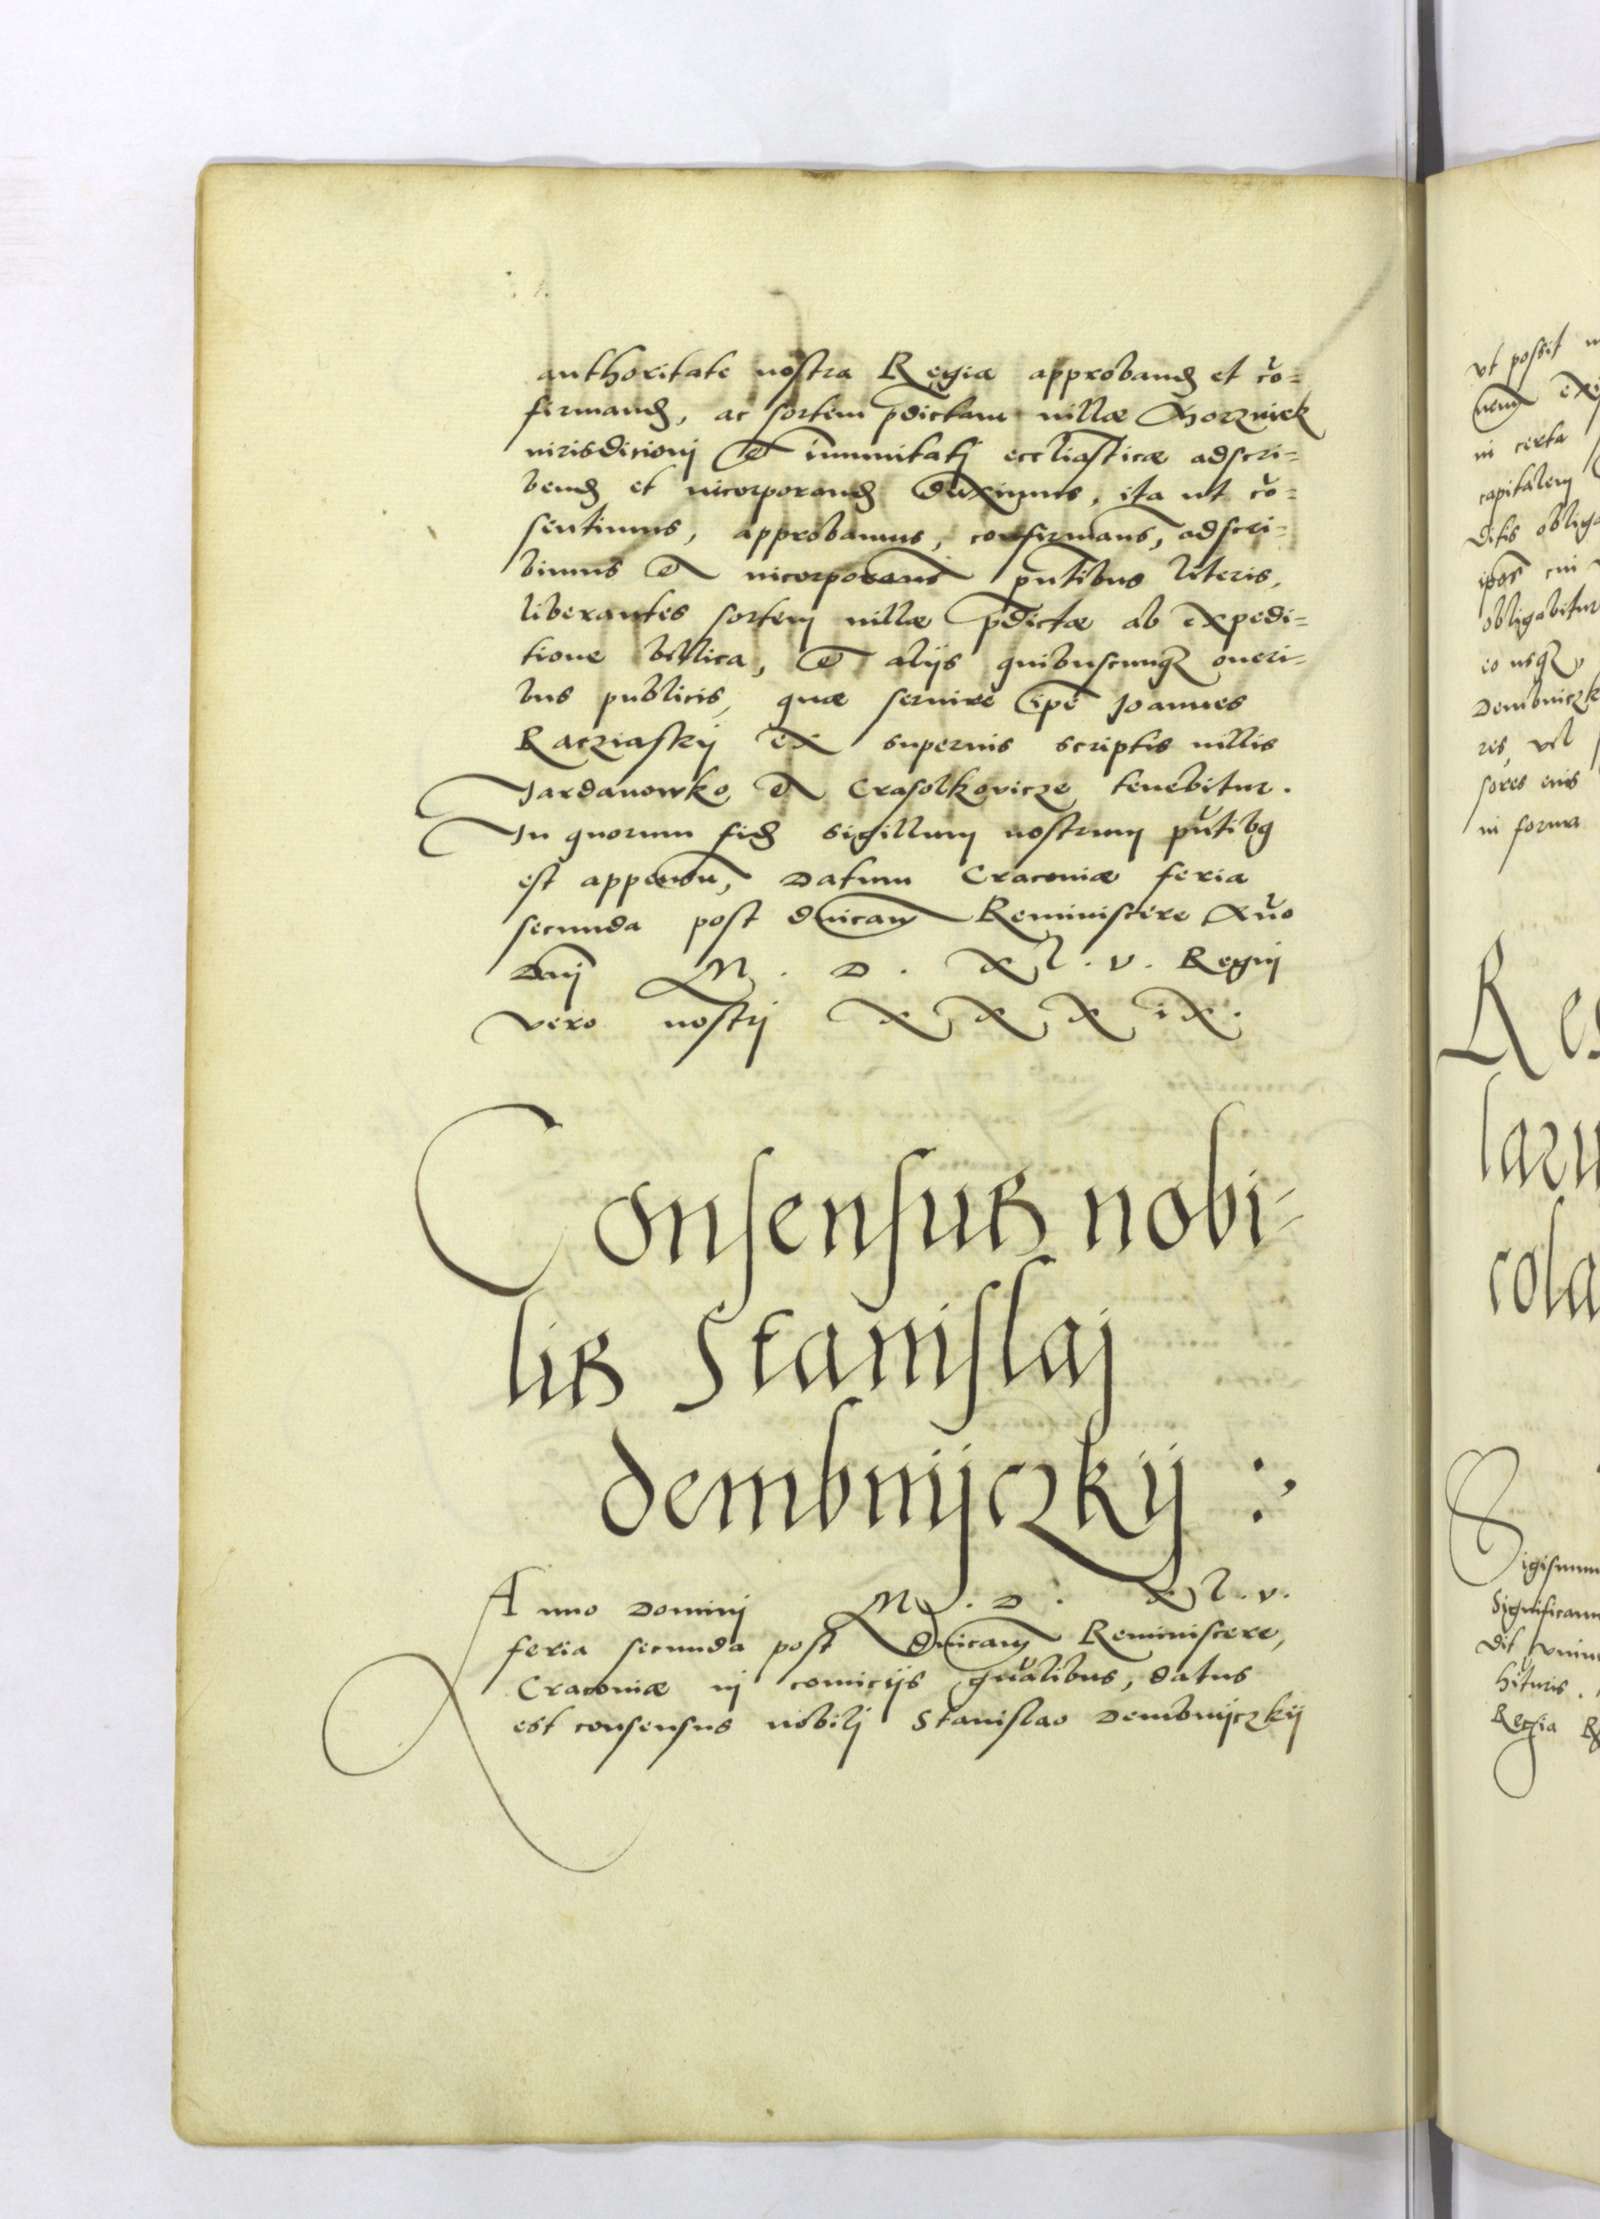 authoritate nostra Regia approband et cō=
firmand, ac sortem pdictam villæ Gorzniek
iurisdicionj et immunitatj eccliasticæ adscri=
bend et incorporand duximus, ita ut cō=
sentimus, approbamus, confirmans, adscri=
bimus et incorporans pntibus literis,
liberantes sortem villæ pdictæ ab expedi=
tione bellica, et alijs quibuscunqz oneri=
bus publicis, quæ servire ipe Joannes
Racziaskij ex superius scriptis villis
Jardanowko et Crasolkovicze tenebitur.
In quorum fid sigillum nostrum pntibg
est appensu, Datum Cracoviæ feria
secunda post dnicam Reminiscere Ano
Dnj M. D. XL. V. Regnj
vero nostrj XXXIX.
Consensus nobi=
lis Stanislaj
dembnijczkij
Anno Dominj M. D. XL. V.
feria secunda post dnicam Reminiscere,
Cracoviæ in comicijs gnalibus, datus
est consensus nobilj Stanislao Dembnijczkij
ut possit
in certa
capitalem
ditis
ipos cui
obligabitur
eo usqz
Dembniczk
res, vel
sores eius
in forma
Re
laru
cola
Sigismun
Significam
Regia